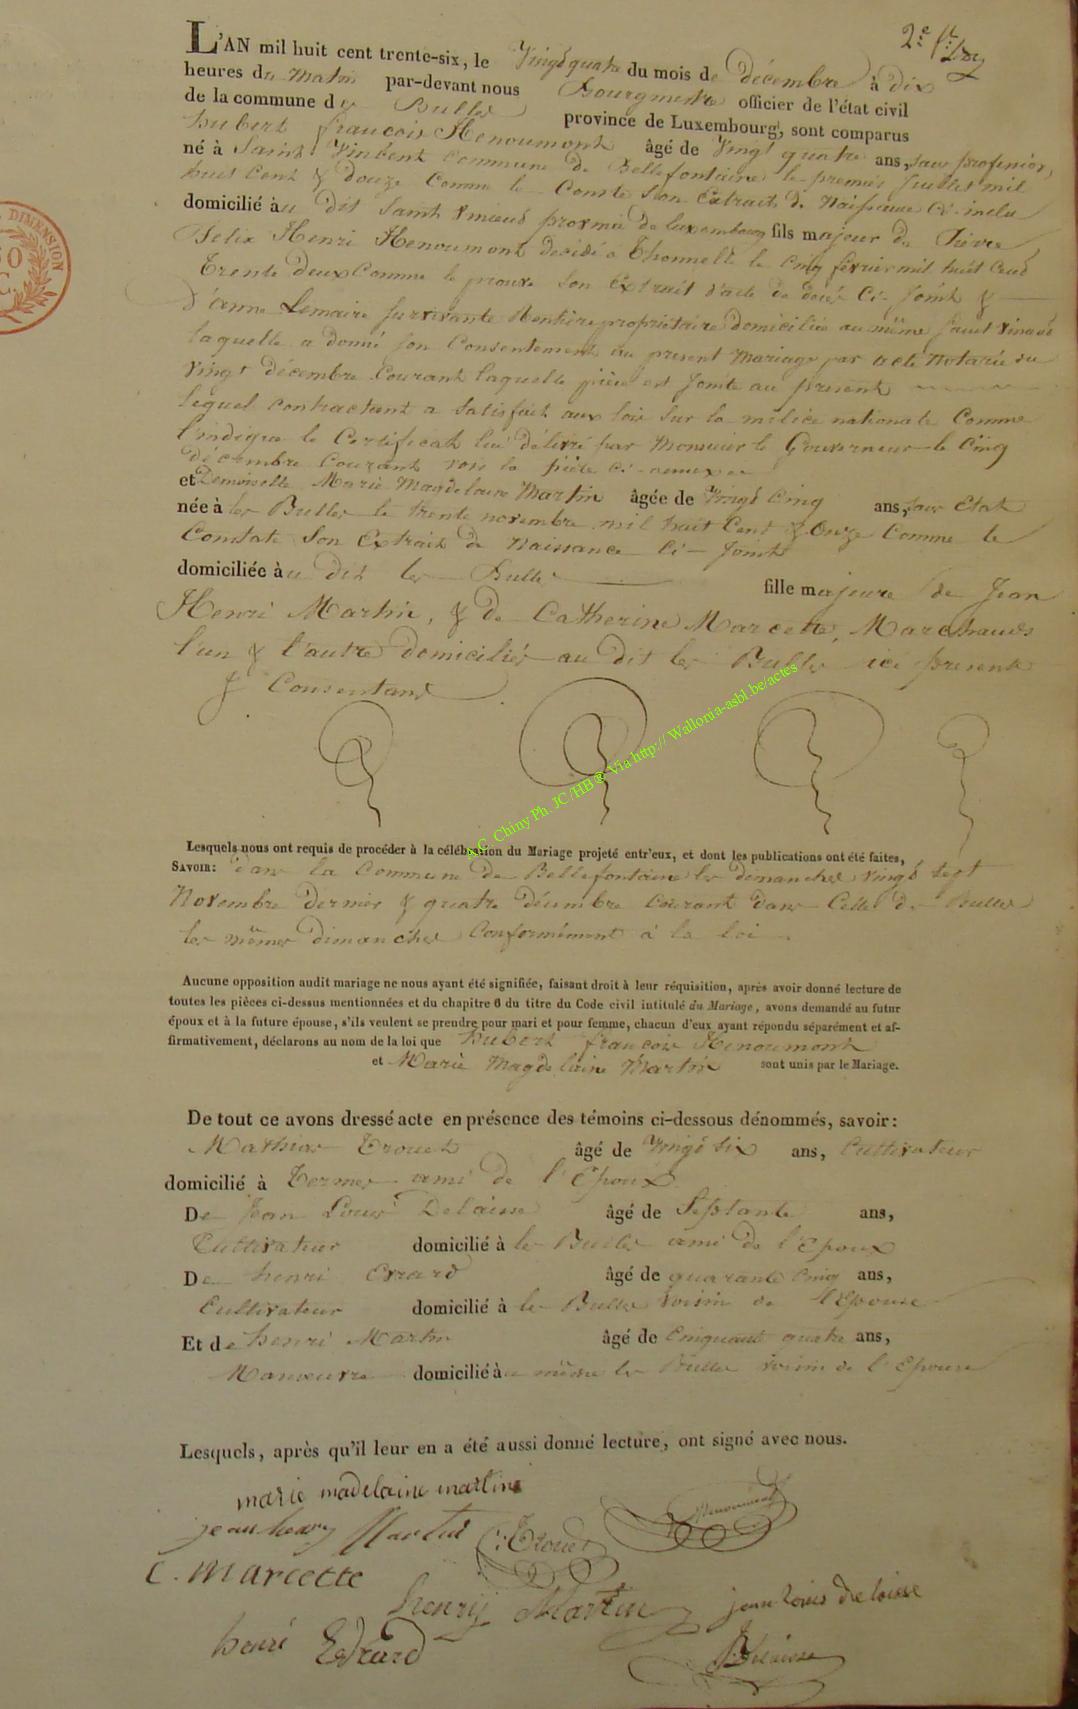 L'AN mil huit cent trente-six, le Vingt quatre du mois de décembre à dix
heures du Matin par-devant nous Bourgmestre officier de l'état civil
de la commune des Bulles province de Luxembourg, sont comparus
hubert francois Henoumont âgé de Vingt quatre ans, sans profession,
né à Saint Vinbent Commune de Bellefontaine le premier Juillet mil
huit Cent & douze Comme le Comte Son Extrait de Naissance Ci inclu
domicilié au dit Saint vincend province de luxembourg fils majeur de
Felix Henri Henoumont décédé à Thonnelle le Cinq février mil huit Cend
Trente deux Comme le prouve Son Extrait d'acte de Ci-Joint &
d'anne Lemaire Survivante Rentière propriétaire domiciliée au même
laquelle a donné Son Consentement au present Mariage par acte Notarié du
Vingt décembre Courant laquelle pièce est Jointe au présent
lequel Contractant a Satisfait aux lois Sur la milice nationale Comme
l'indique le Certificat lui délivré par Monsieur le Gouverneur le Cinq
décembre Courant la pièce Ci-annexée
et Demoiselle Marie Magdelaine Martin âgée de Vingt Cinq ans, sans Etat
née à les Bulles le trente novembre mil huit Cent & Onze Comme le
Constate Son Extrait de Naissance Ci-Joint
domiciliée au dit les Bulles fille majeure de Jean
Henri Martin, & de Catherine Marcette, Marchands
l'un & l'autre domiciliés au dit les Bulles ici present
& Consentant
A.C. Chiny Ph. JC/HB @ Via http:// Wallonia-asbl.be/actes
Lesquels nous ont requis de procéder à la célébration du Mariage projeté entr'eux, et dont les publications ont été faites,
SAVOIR: dans la Commune de Bellefontaine les dimanches vingt sept
Novembre dernier & quatre décembre Courant dans Celle de Bulles
les mêmes dimanches Conformément à la loi
Aucune opposition audit mariage ne nous ayant été signifiée, faisant droit à leur réquisition, après avoir donné lecture de
toutes les pièces ci-dessus mentionnées et du chapitre 6 du titre du Code civil intitulé du Mariage, avons demandé au futur
époux et à la future épouse, s'ils veulent se prendre pour mari et pour femme, chacun d'eux ayant répondu séparément et af-
firmativement, déclarons au nom de la loi que hubert francois Henoumont
et Marie Magdelaine Martin sont unis par le Mariage.
De tout ce avons dressé acte en présence des témoins ci-dessous dénommés, savoir:
Mathias Trouet âgé de Vingt six ans, Cultivateur
domicilié à Termes ami de l'Epoux
De Jean Louis Delaisse âgé de Septante ans,
Cultivateur domicilié à les Bulles ami de l'Epoux
De henri Evrard âgé de quarante Cinq ans,
Cultivateur domicilié à les Bulles Voisin de l'Epouse
Et de henri Martin âgé de Cinquante quatre ans,
Manoeuvre domicilié au même les Bulles voisin de l'Epouse
Lesquels, après qu'il leur en a été aussi donné lecture, ont signé avec nous.
marie madelaine martin
jean henry Martin Trouet Henoumont
C. Marcette
henry Martin jean louis Delaisse
henri Evrard